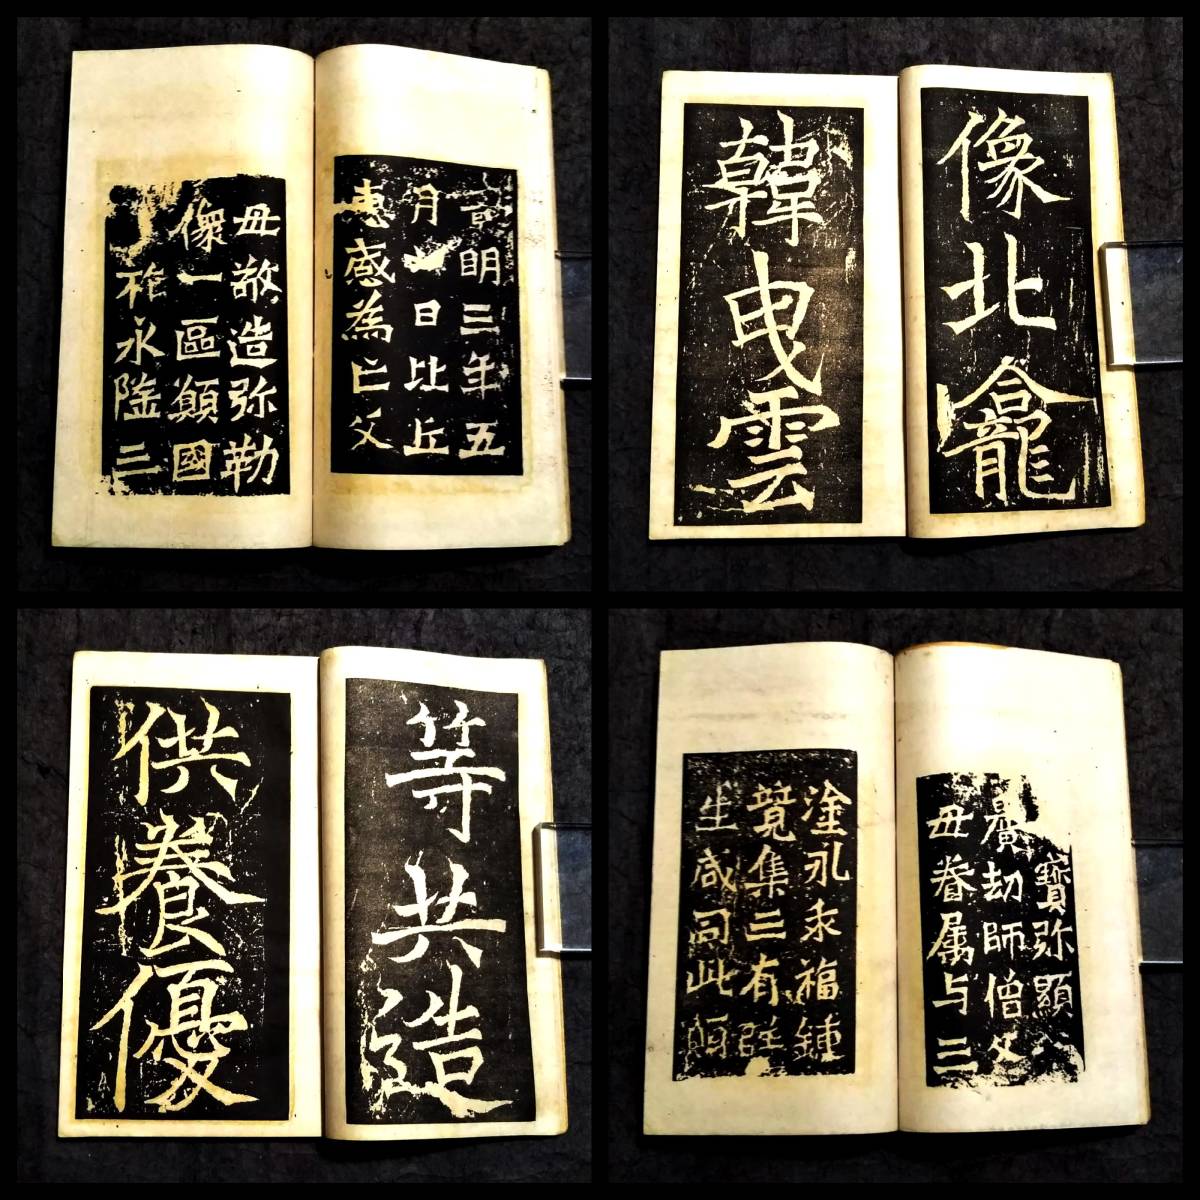 景明三年五
月日比丘
惠感為亡父
母敬造弥勒
像一區願國
祚永隆三
像北龕
韓曳雲
等共造
供養優
寶弥顯
曠劫師僧父
母眷属与三
塗永乖福鍾
竟集三有群
生咸同此願